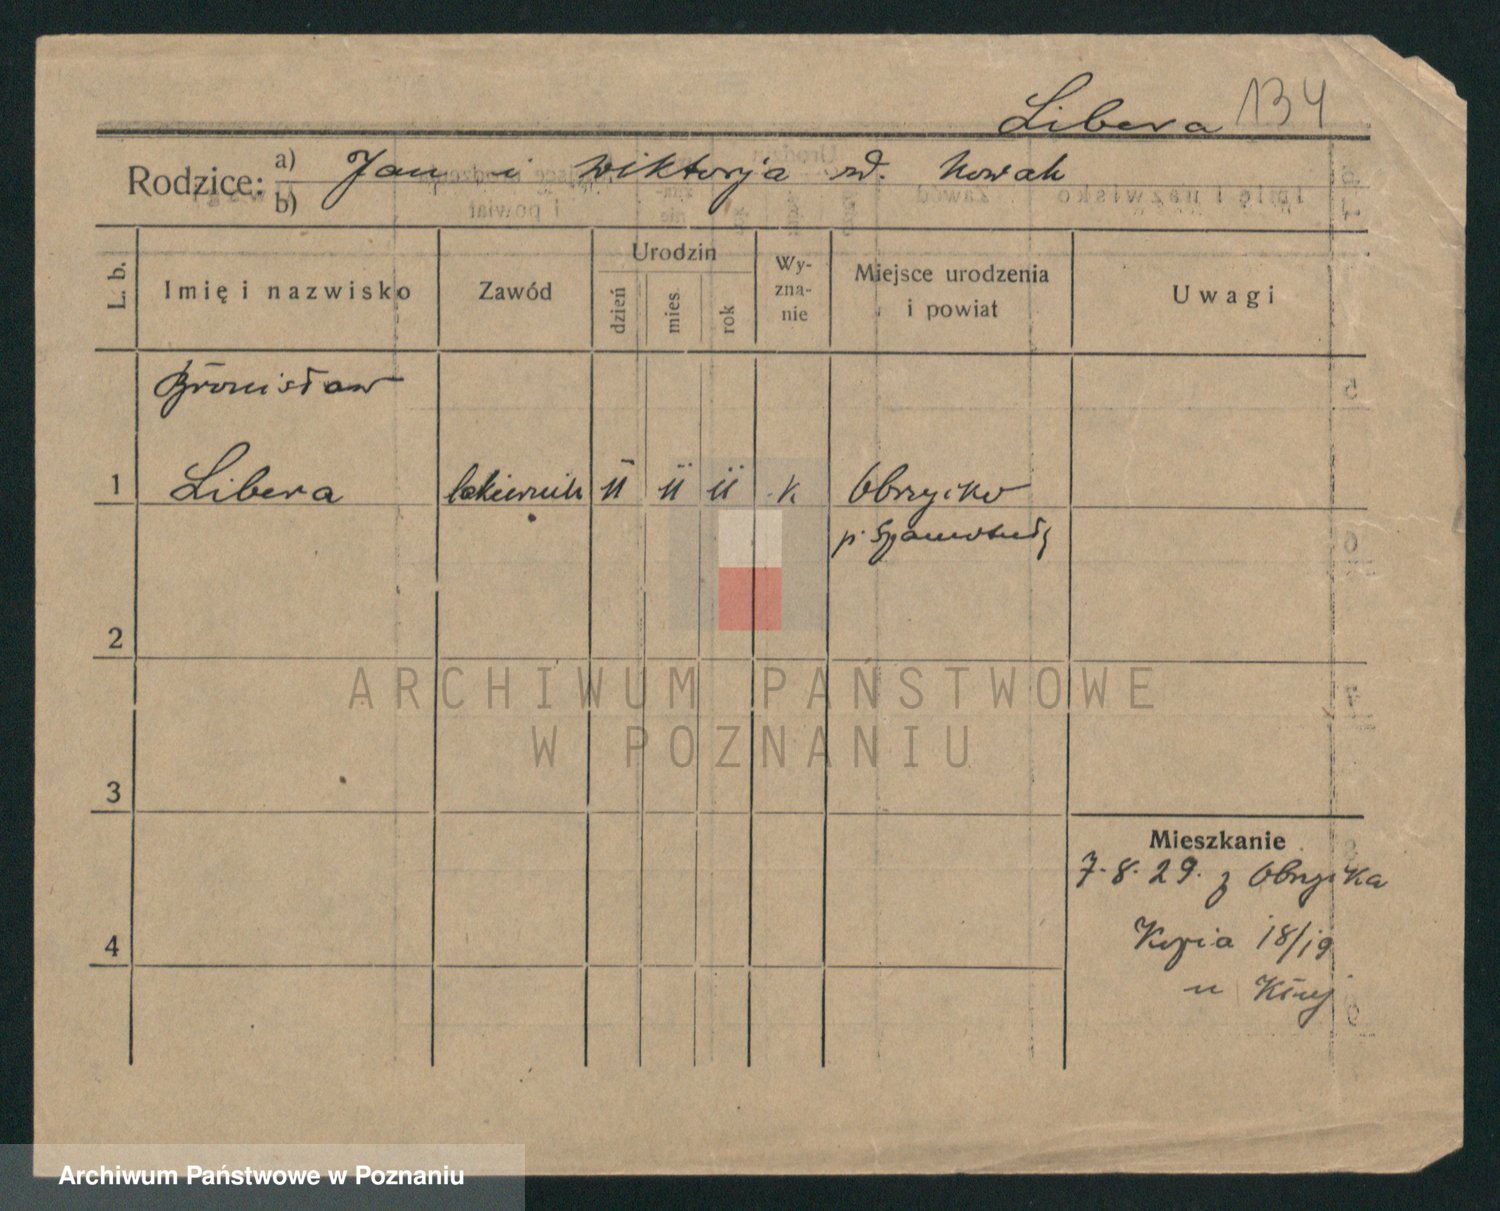 Libera 134
Rodzice: a) Jan i Wiktorja rd. Nowak
b)
L. b.
Imię i nazwisko
Zawód
Urodzin
dzień
mies.
rok
Wy-
zna-
nie
Miejsce urodzenia
i powiat
Uwagi
Bronisław
1 Libera lakiernik 11 11 11 k Obrzycko
p. Szamotuły
2
3
4
Mieszkanie
7.8.29. z Obrzycka
18/19
u
ARCHIWUM PAŃSTWOWE
W POZNANIU
Archiwum Państwowe w Poznaniu